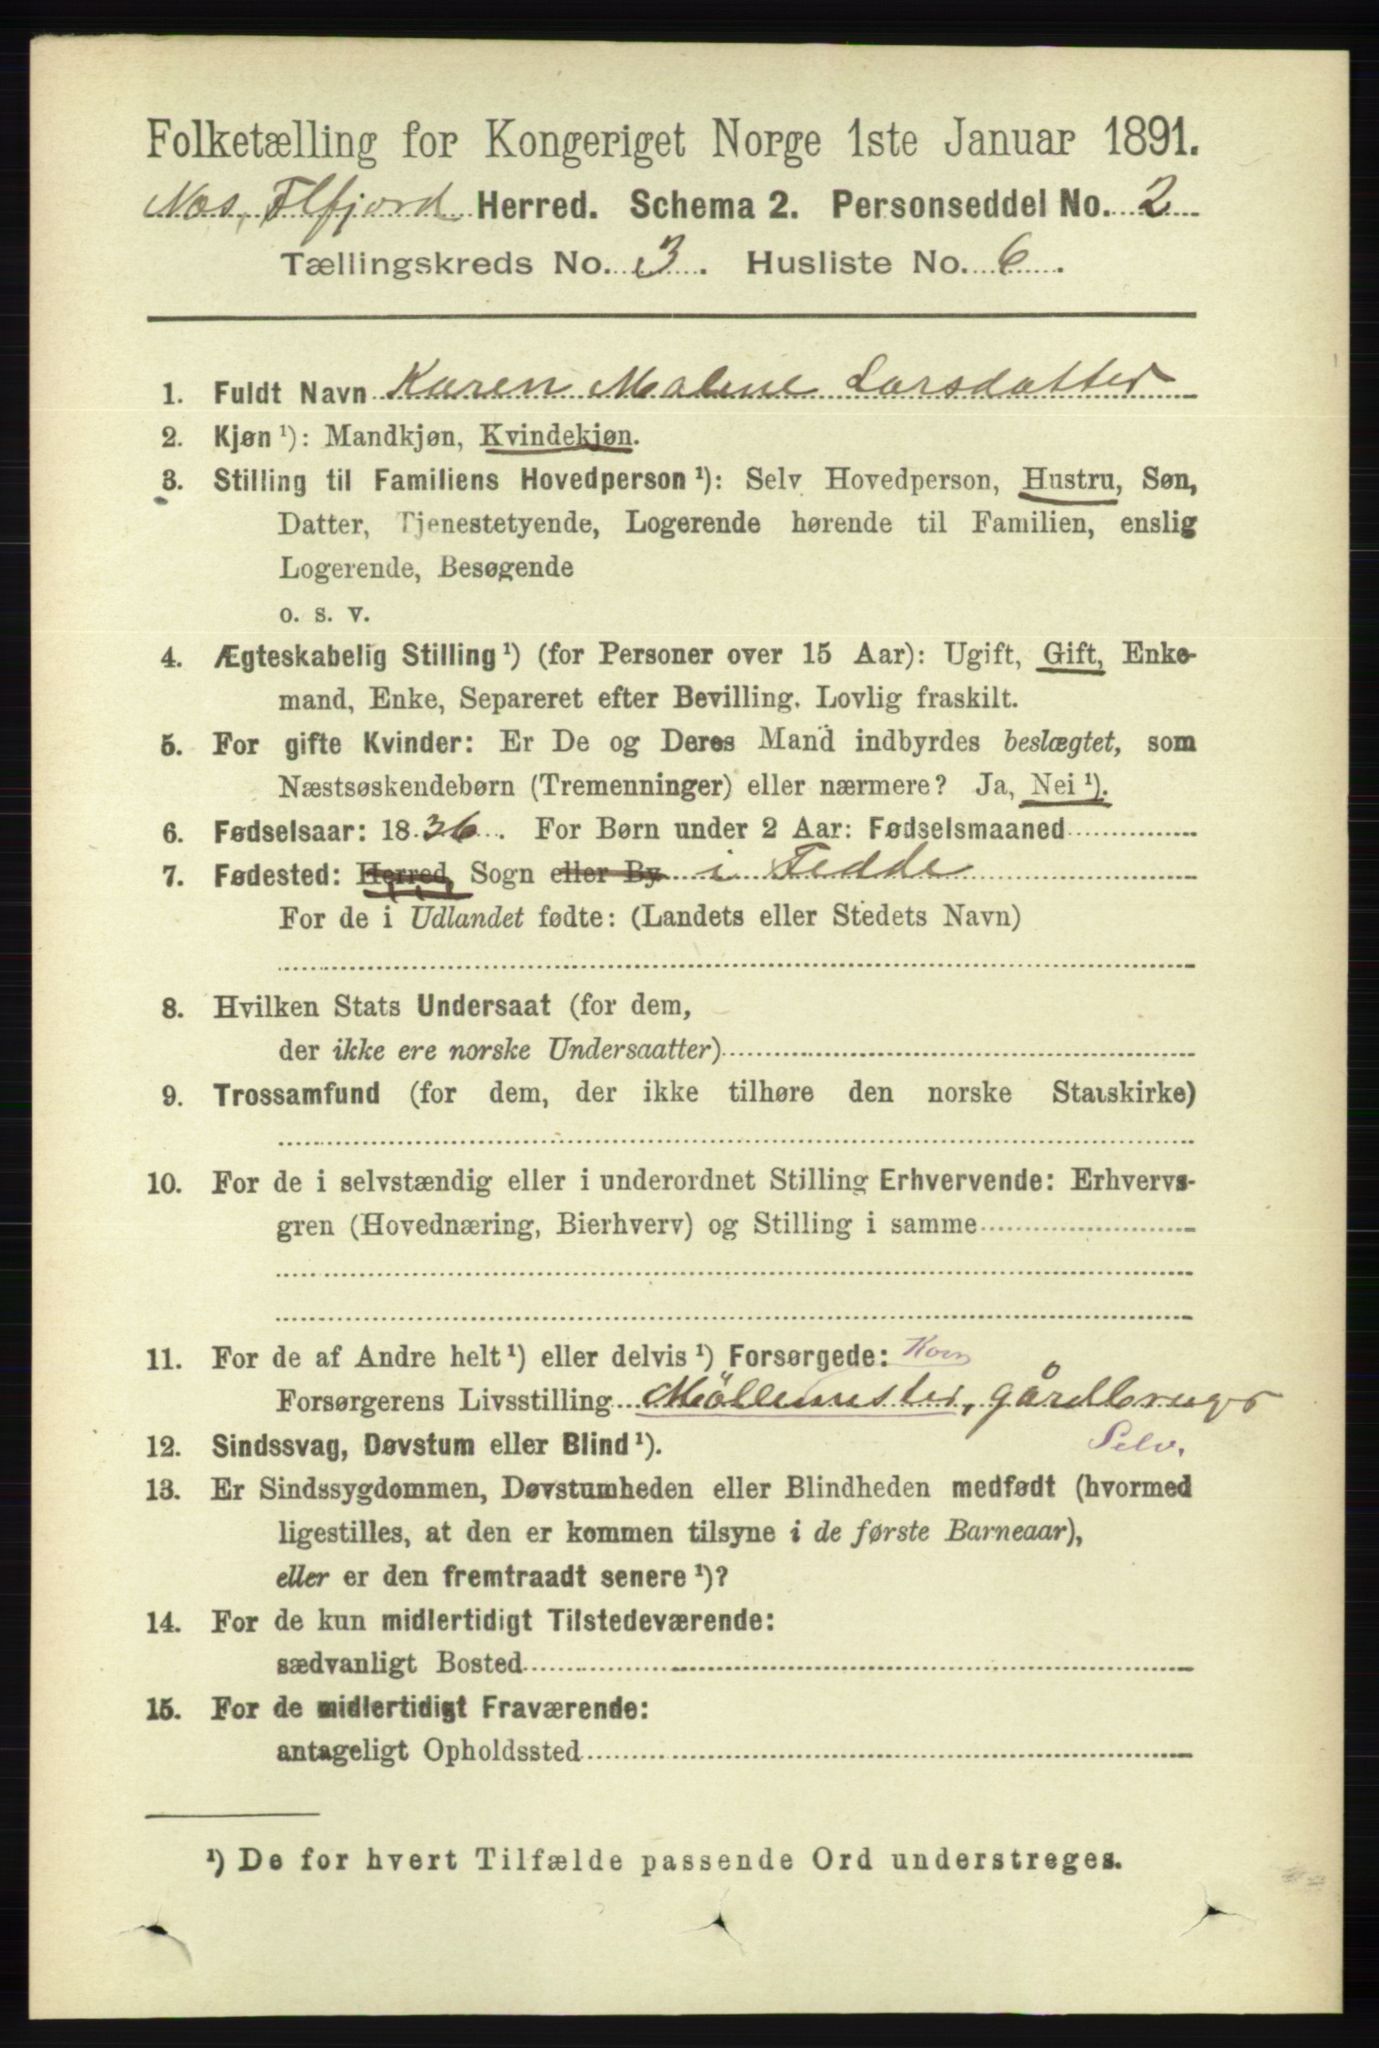 Folketælling for Kongeriget Norge 1ste Januar 1891.
Herred. Schema 2. Personseddel No. 2
Tællingskreds No. 3. Husliste No. 6.
1. Fuldt Navn Karen Malene Larsdatter
2. Kjøn ¹): Mandkjøn, Kvindekjøn.
3. Stilling til Familiens Hovedperson ¹): Selv Hovedperson, Hustru, Søn,
Datter, Tjenestetyende, Logerende hørende til Familien, enslig
Logerende, Besøgende
o. s. v.
4. Ægteskabelig Stilling ¹) (for Personer over 15 Aar): Ugift, Gift, Enke-
mand, Enke, Separeret efter Bevilling. Lovlig fraskilt.
5. For gifte Kvinder: Er De og Deres Mand indbyrdes beslægtet, som
Næstsøskendebørn (Tremenninger) eller nærmere? Ja, Nei ¹).
6. Fødselsaar: 1836. For Børn under 2 Aar: Fødselsmaaned
7. Fødested: Herred, Sogn eller By i Fedde
For de i Udlandet fødte: (Landets eller Stedets Navn)
8. Hvilken Stats Undersaat (for dem,
der ikke ere norske Undersaatter)
9. Trossamfund (for dem, der ikke tilhøre den norske Statskirke)
10. For de i selvstændig eller i underordnet Stilling Erhvervende: Erhvervs-
gren (Hovednæring, Bierhverv) og Stilling i samme
11. For de af Andre helt ¹) eller delvis ¹) Forsørgede: Korn
Forsørgerens Livsstilling Möllemester, gårdbruger
Selv.
12. Sindssvag, Døvstum eller Blind ¹).
13. Er Sindssygdommen, Døvstumheden eller Blindheden medfødt (hvormed
ligestilles, at den er kommen tilsyne i de første Barneaar),
eller er den fremtraadt senere ¹)?
14. For de kun midlertidigt Tilstedeværende:
sædvanligt Bosted
15. For de midlertidigt Fraværende:
antageligt Opholdssted
¹) De for hvert Tilfælde passende Ord understreges.